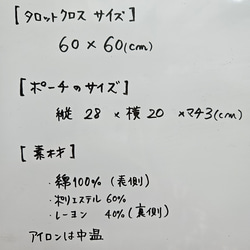 [タロットクロス サイズ]
60 × 60(cm)
[ポーチのサイズ]
縦 28 × 横 20 × マチ3(cm)
[素材]
・綿100% (表側)
・ポリエステル 60%
・レーヨン 40% (裏側)
アイロンは中温